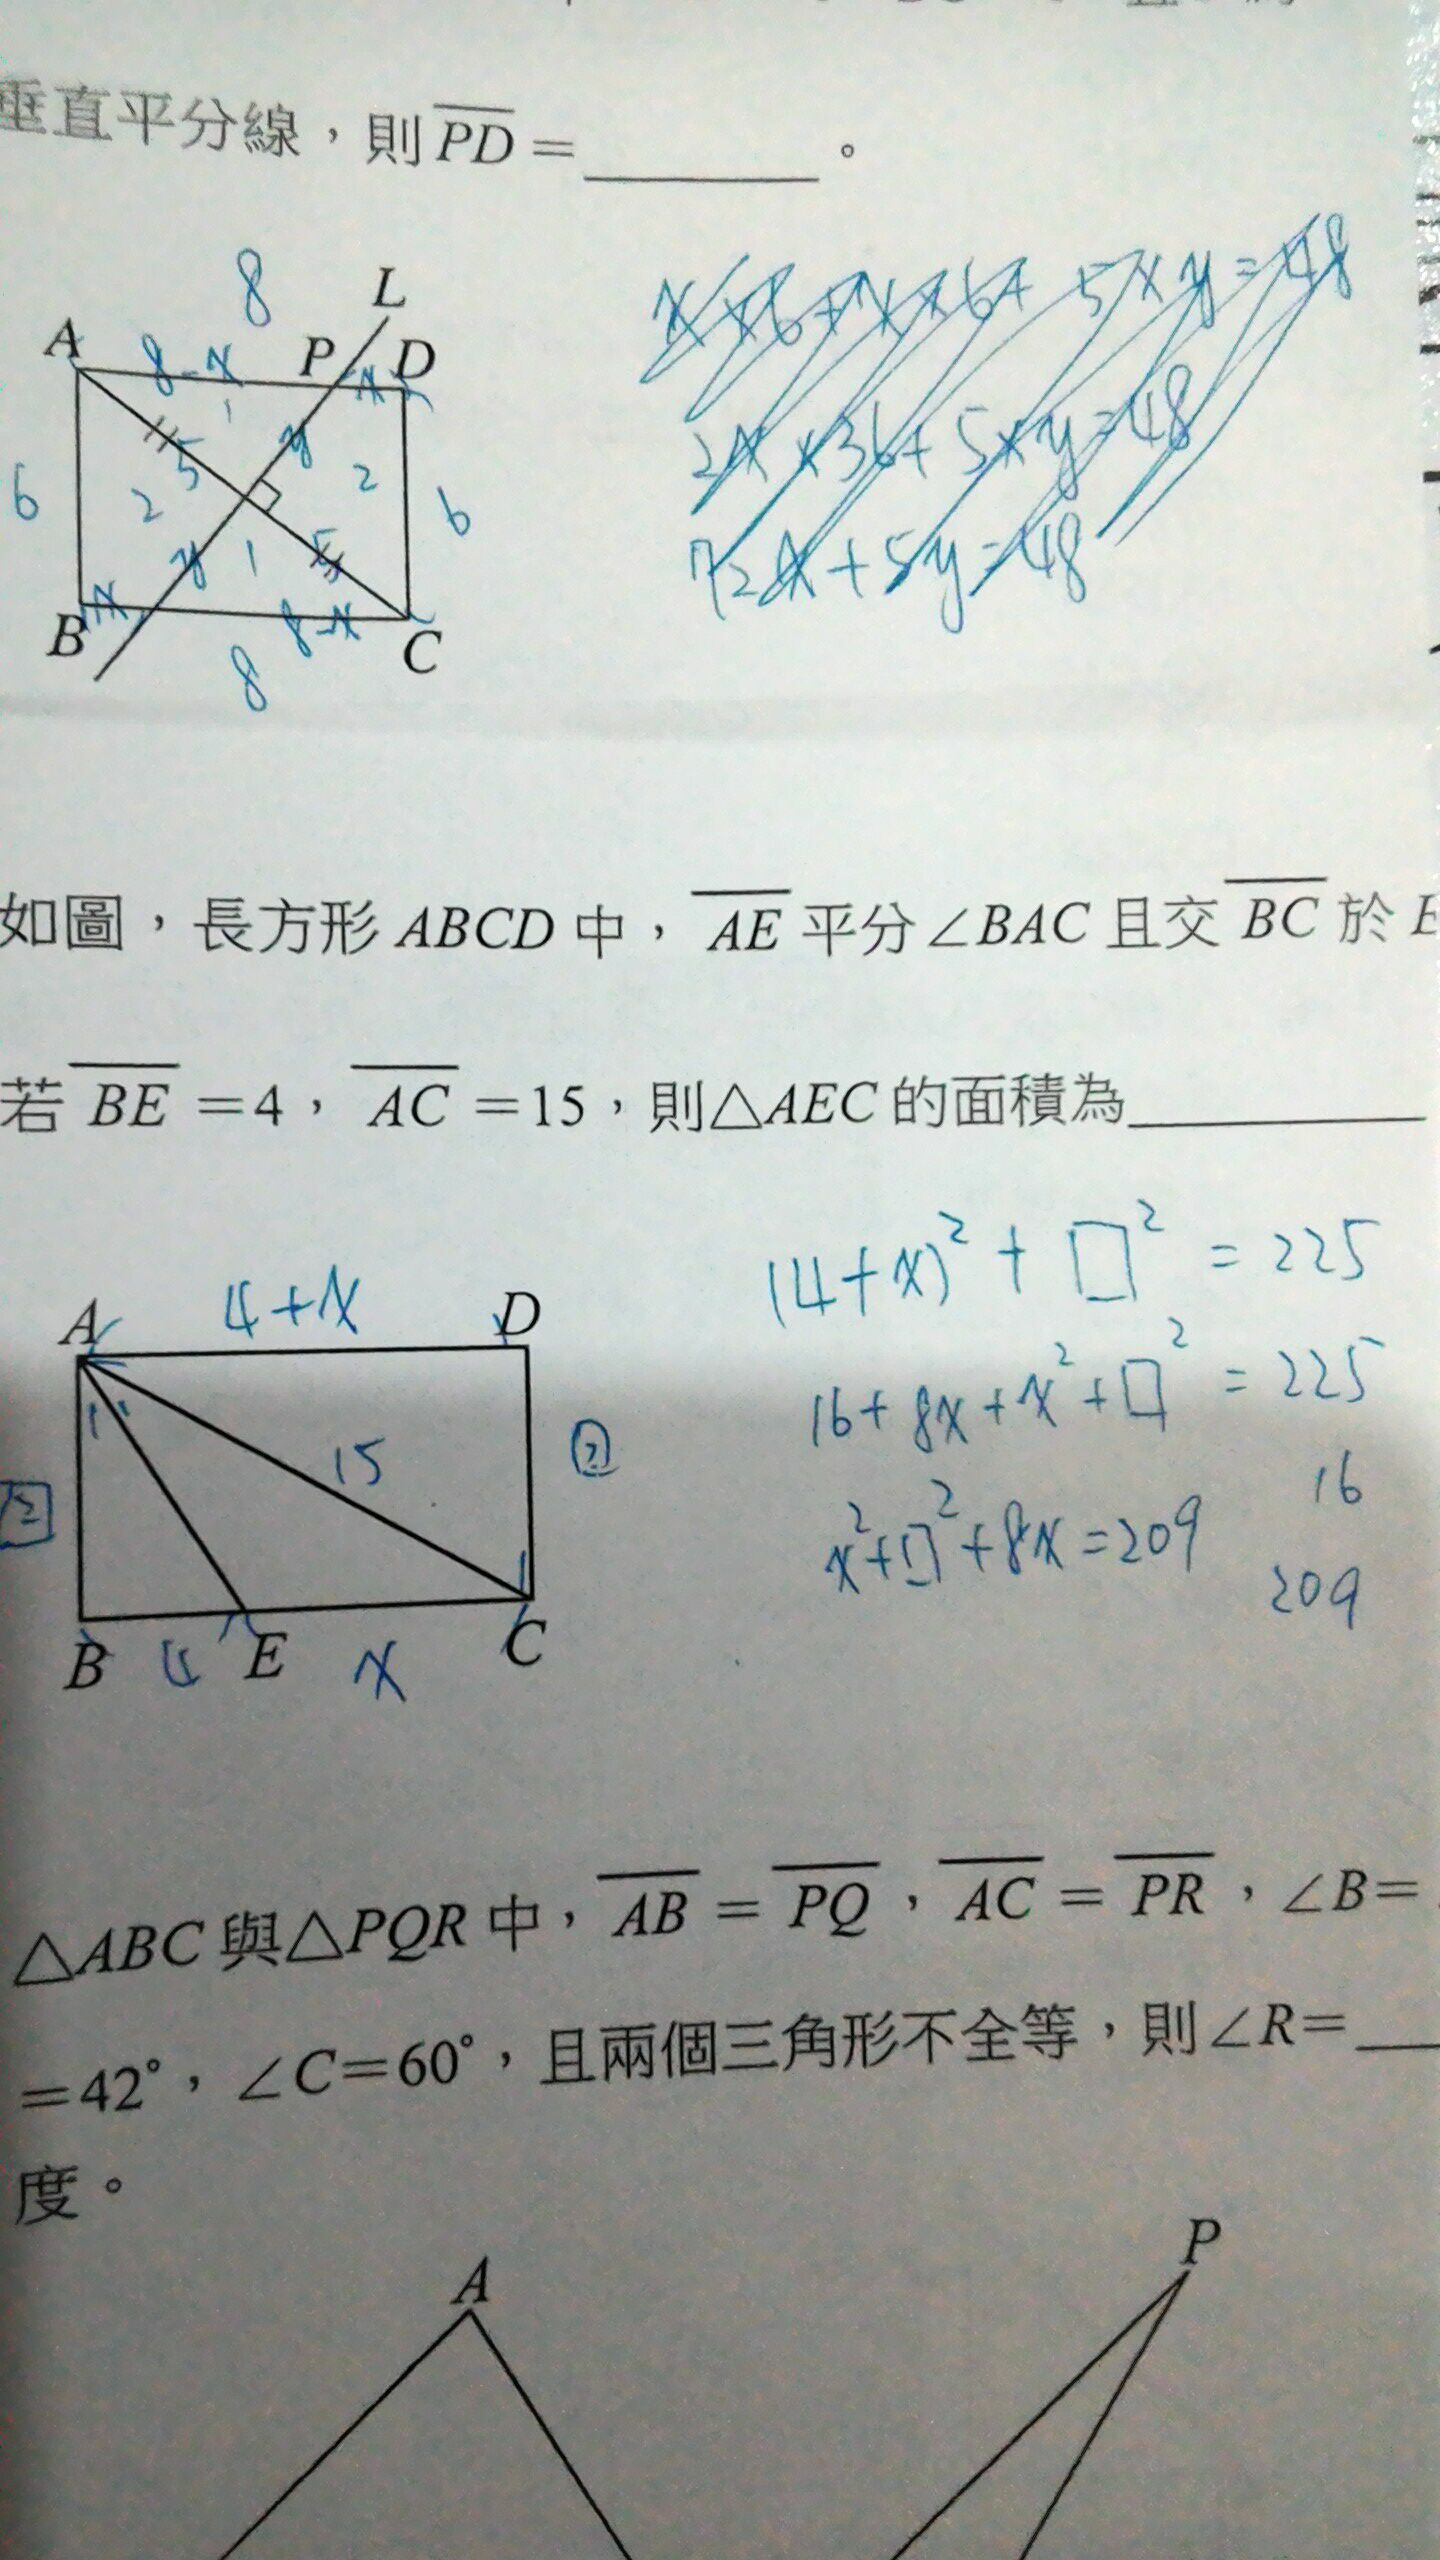 垂直平分線，則 PD = ______。
8
L
A
8-x
P
D
x
5
y
6
2
2
6
y
1
5
B
x
8-x
C
8
x×6+x×6+5×y=48
2x×36+5×y=48
72x+5y=48
如圖，長方形 ABCD 中，AE 平分∠BAC 且交 BC 於 E
若 BE =4，AC =15，則△AEC 的面積為______
4+x
A
D
15
?
?
B
4
E
x
C
(4+x)²+□²=225
16+8x+x²+□²=225
16
x²+□²+8x=209
209
△ABC 與△PQR 中，AB = PQ，AC = PR，∠B=
=42°，∠C=60°，且兩個三角形不全等，則∠R=__
度。
A
P